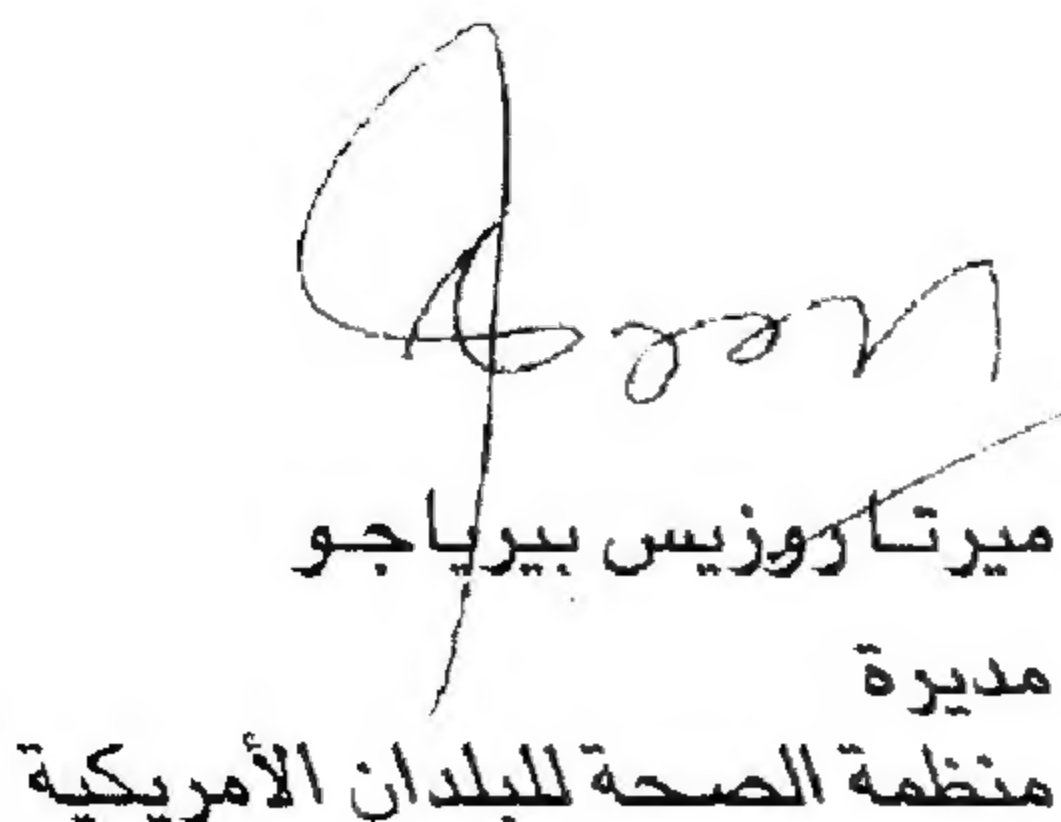 ميرتا روزيس بيرياجو
مديرة
منظمة الصحة للبلدان الأمريكية